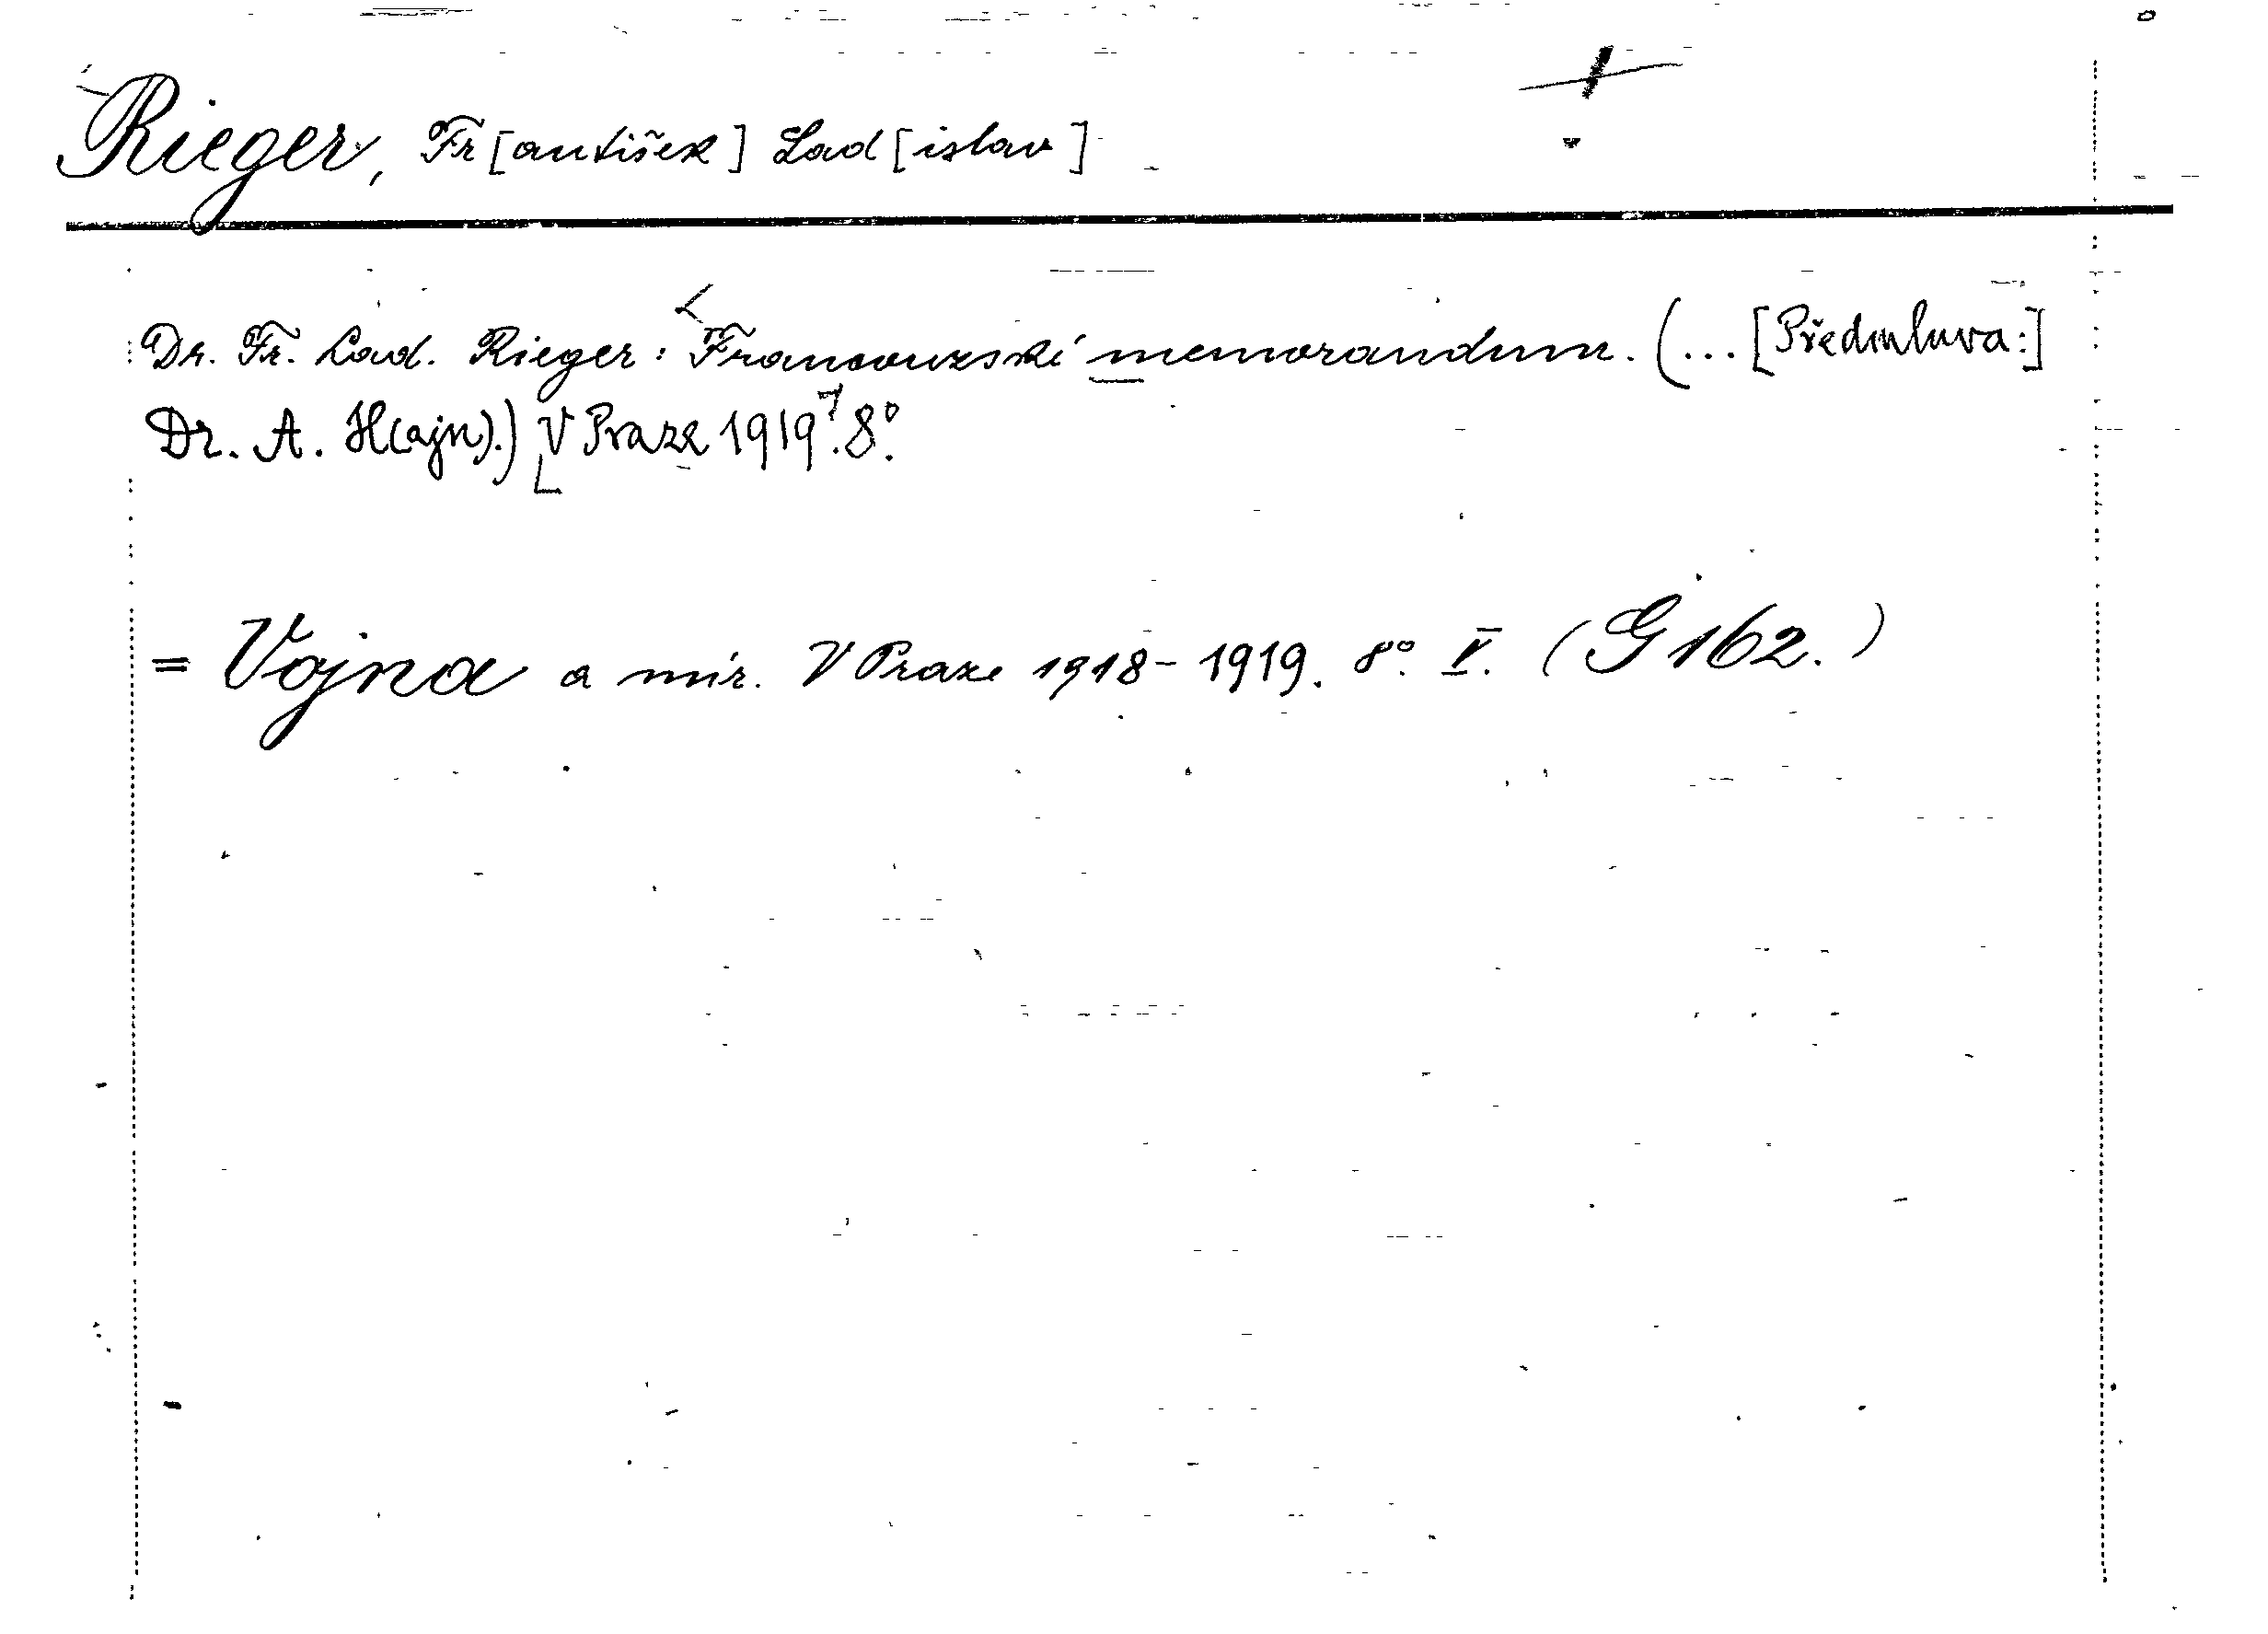 Rieger, Fr[antišek] Lad[islav]
Dr. Fr. Lad. Rieger: Francouzské memorandum. (... [Předmluva:]
Dr. A. H(ajn).) V Praze 1919. 8°.
= Vojna a mír. V Praze 1918-1919. 8°. V. (G 162.)